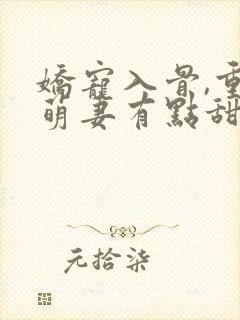 嬌寵入骨,重
萌妻有點甜
元拾柒